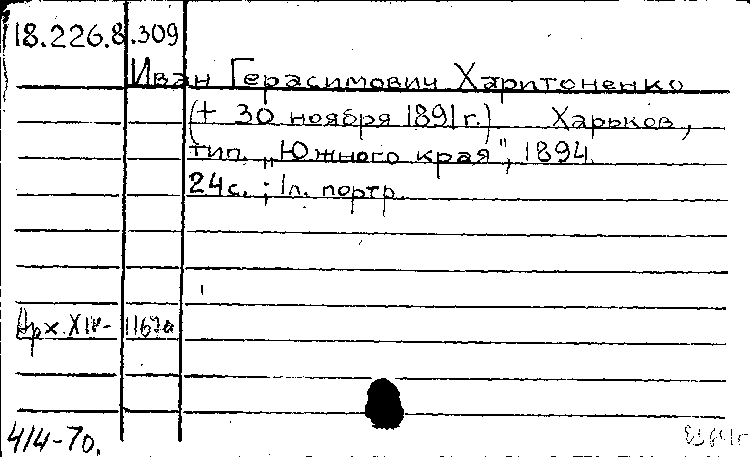 18.226.8.309
Иван Герасимович Харитоненко
(+ 30 ноября 1891 г.) Харьков,
тип. „Южного края", 1894.
24 с. ; 1 л. портр.
Арх. XIV- 1167а
4/4-70.